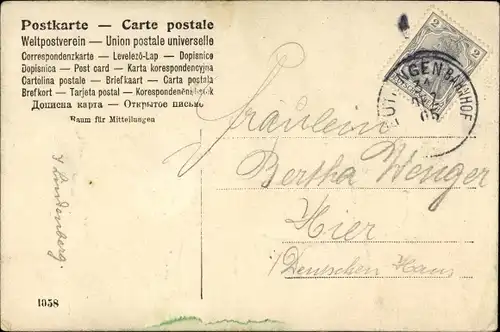 Postkarte — Carte postale
Weltpostverein — Union postale universelle
Correspondenzkarte — Levelező-Lap — Dopisnice
Dopisnica — Post card — Karta korespondencyjna
Cartolina postale — Briefkaart — Carta postala
Brefkort — Tarjeta postal — Korespondenční lístek
Дописна карта — Открытое письмо
Raum für Mitteilungen
2 2
BAHNHOF
05
Fräulein
Bertha Wenger
Hier
Deutschen Haus
Lindenberg.
1958